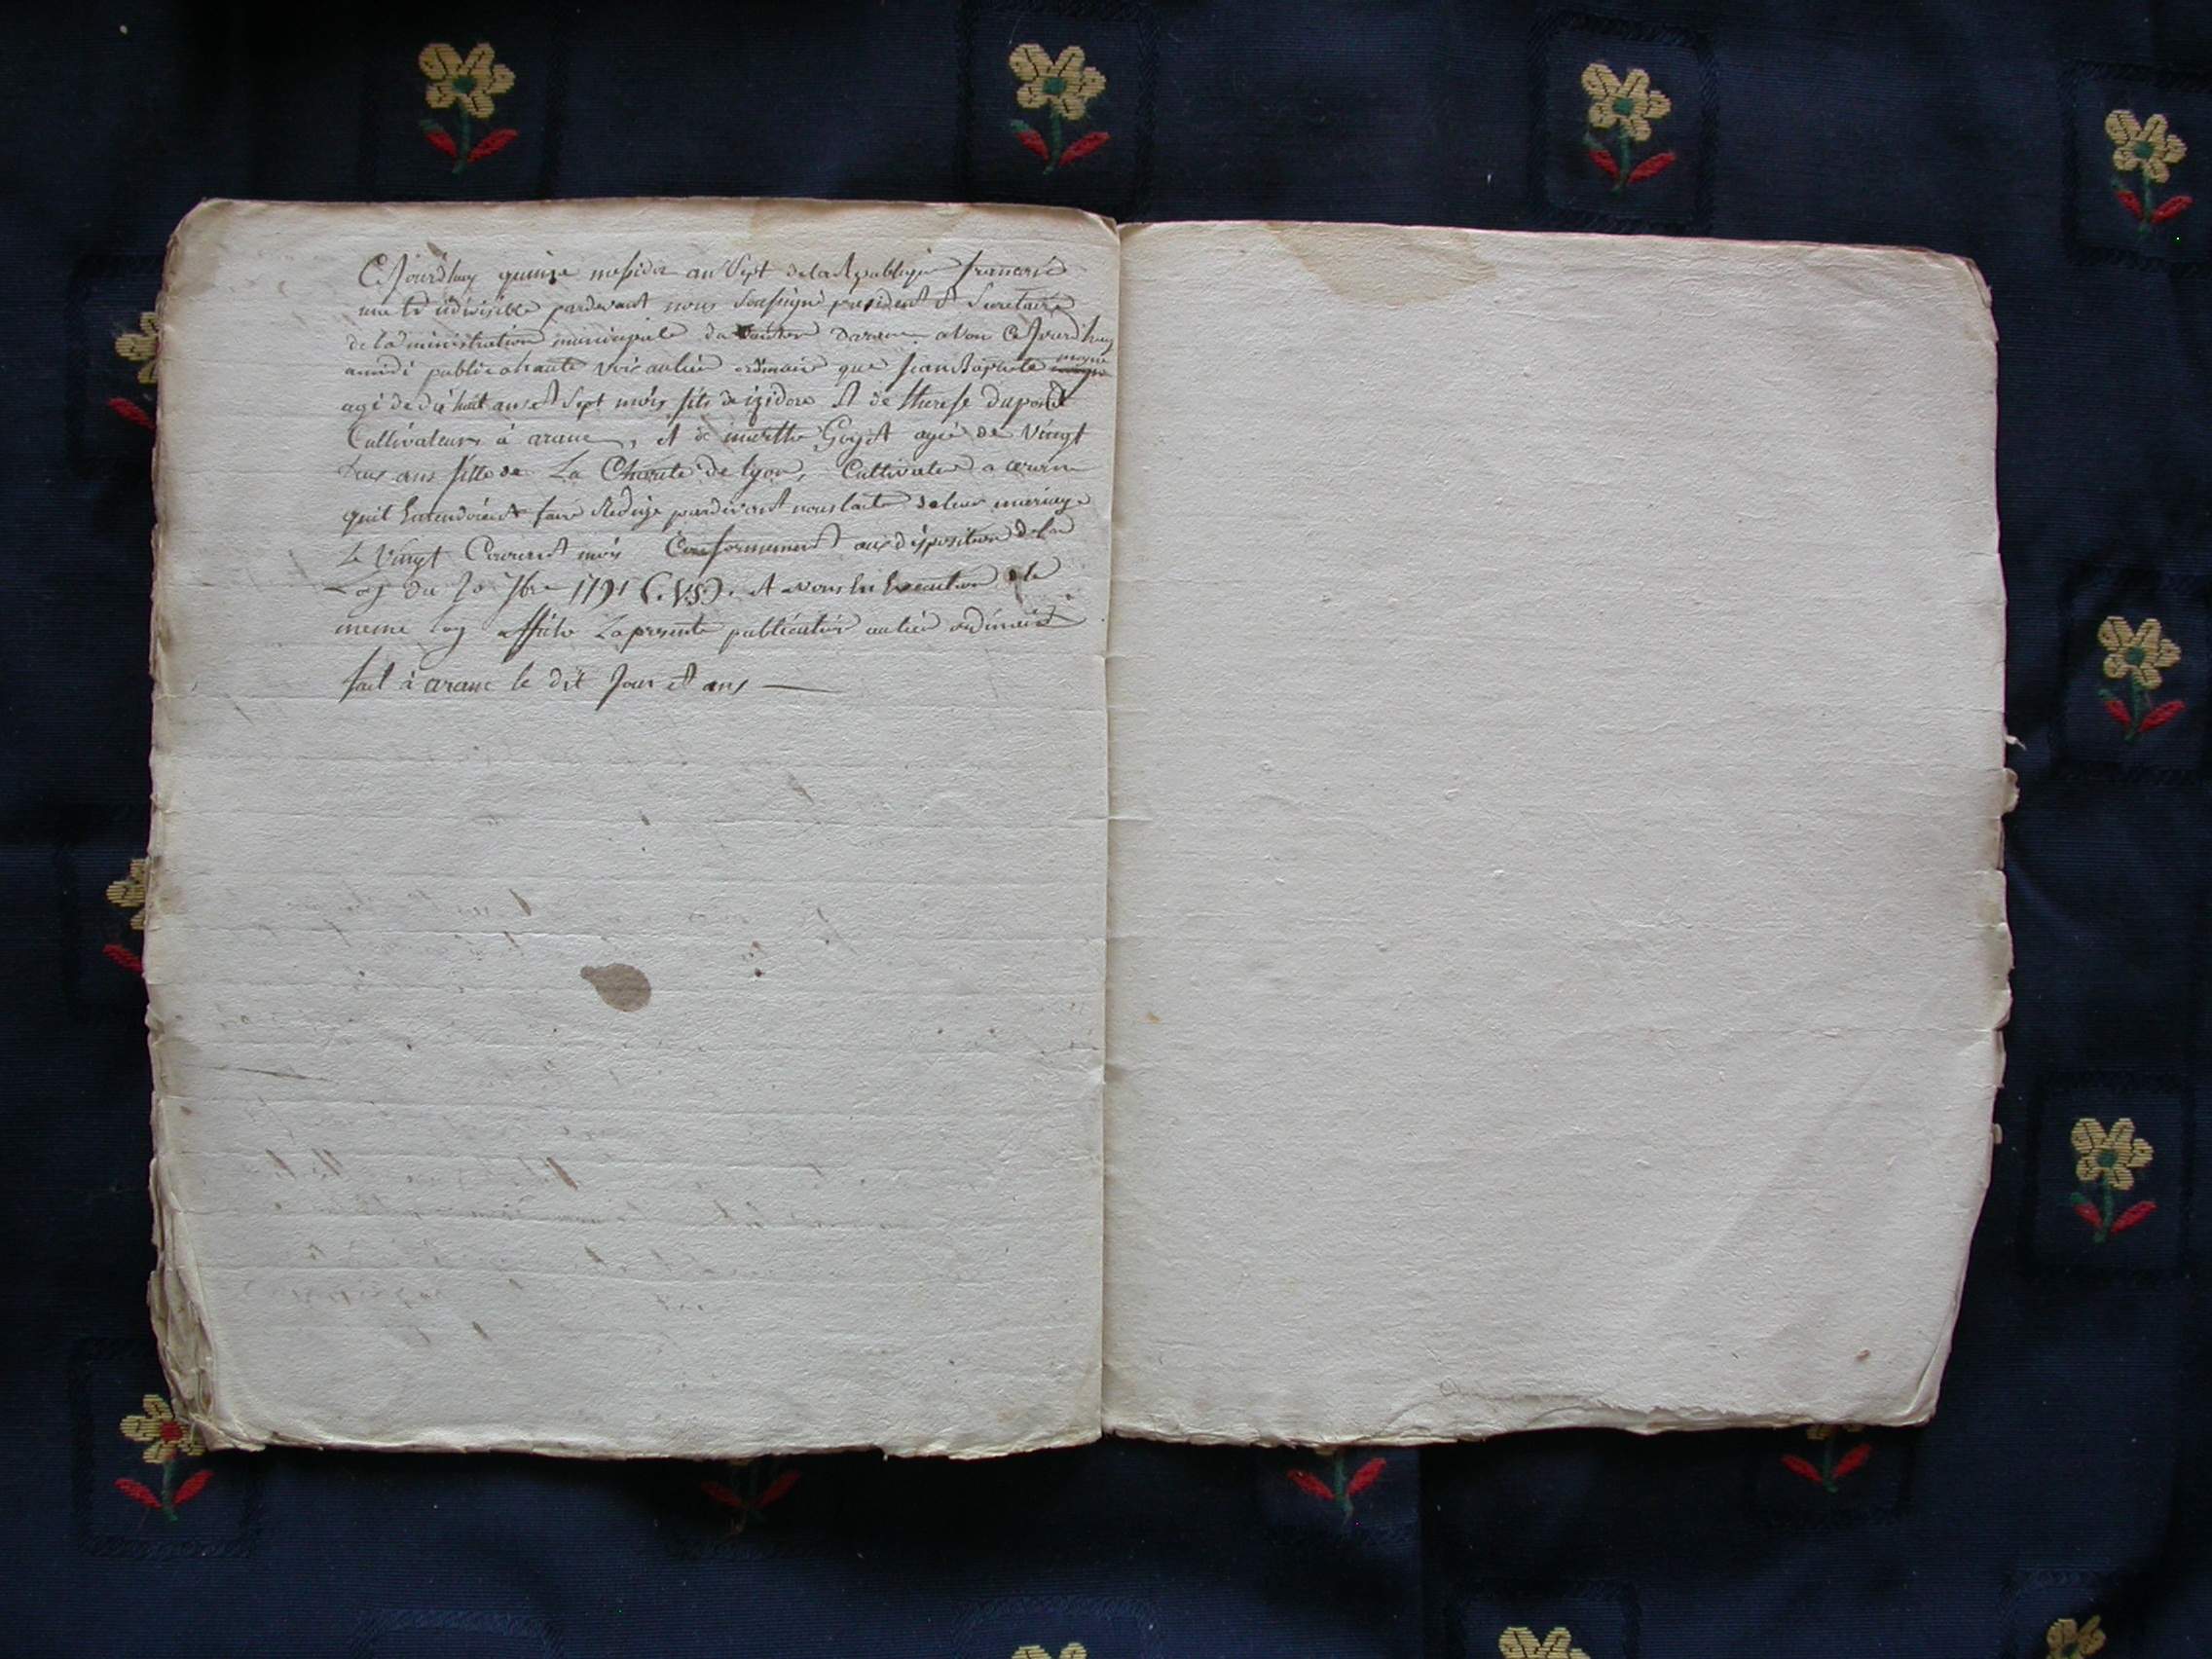 Cejourdhuy quinze messidor an Sept de la Republique francaise
une et indivisible pardevant nous Soussigné president et Secretaire
de ladministration municipale du Canton daranc avon Cejourdhuy
a midi publié a haute voix au lieu ordinaire que jean Baptiste moyne
agé de dix huit ans et Sept mois fils de izidore et de therese dupont
Cultivateurs à aranc, et de marthe Goyet agée de Vingt
trois ans fille de La Charité de lyon, Cultivateur a aranc
quil Entendoient faire Rediger pardevant nous lacte de leur mariage
Le Vingt Courant mois Conformement aux disposition de la
Loy du 20 7bre 1791 (.V.S.). et avons En Execution de la
meme loy affiché La presente publication au lieu ordinaire
fait à aranc le dit Jour et ans —